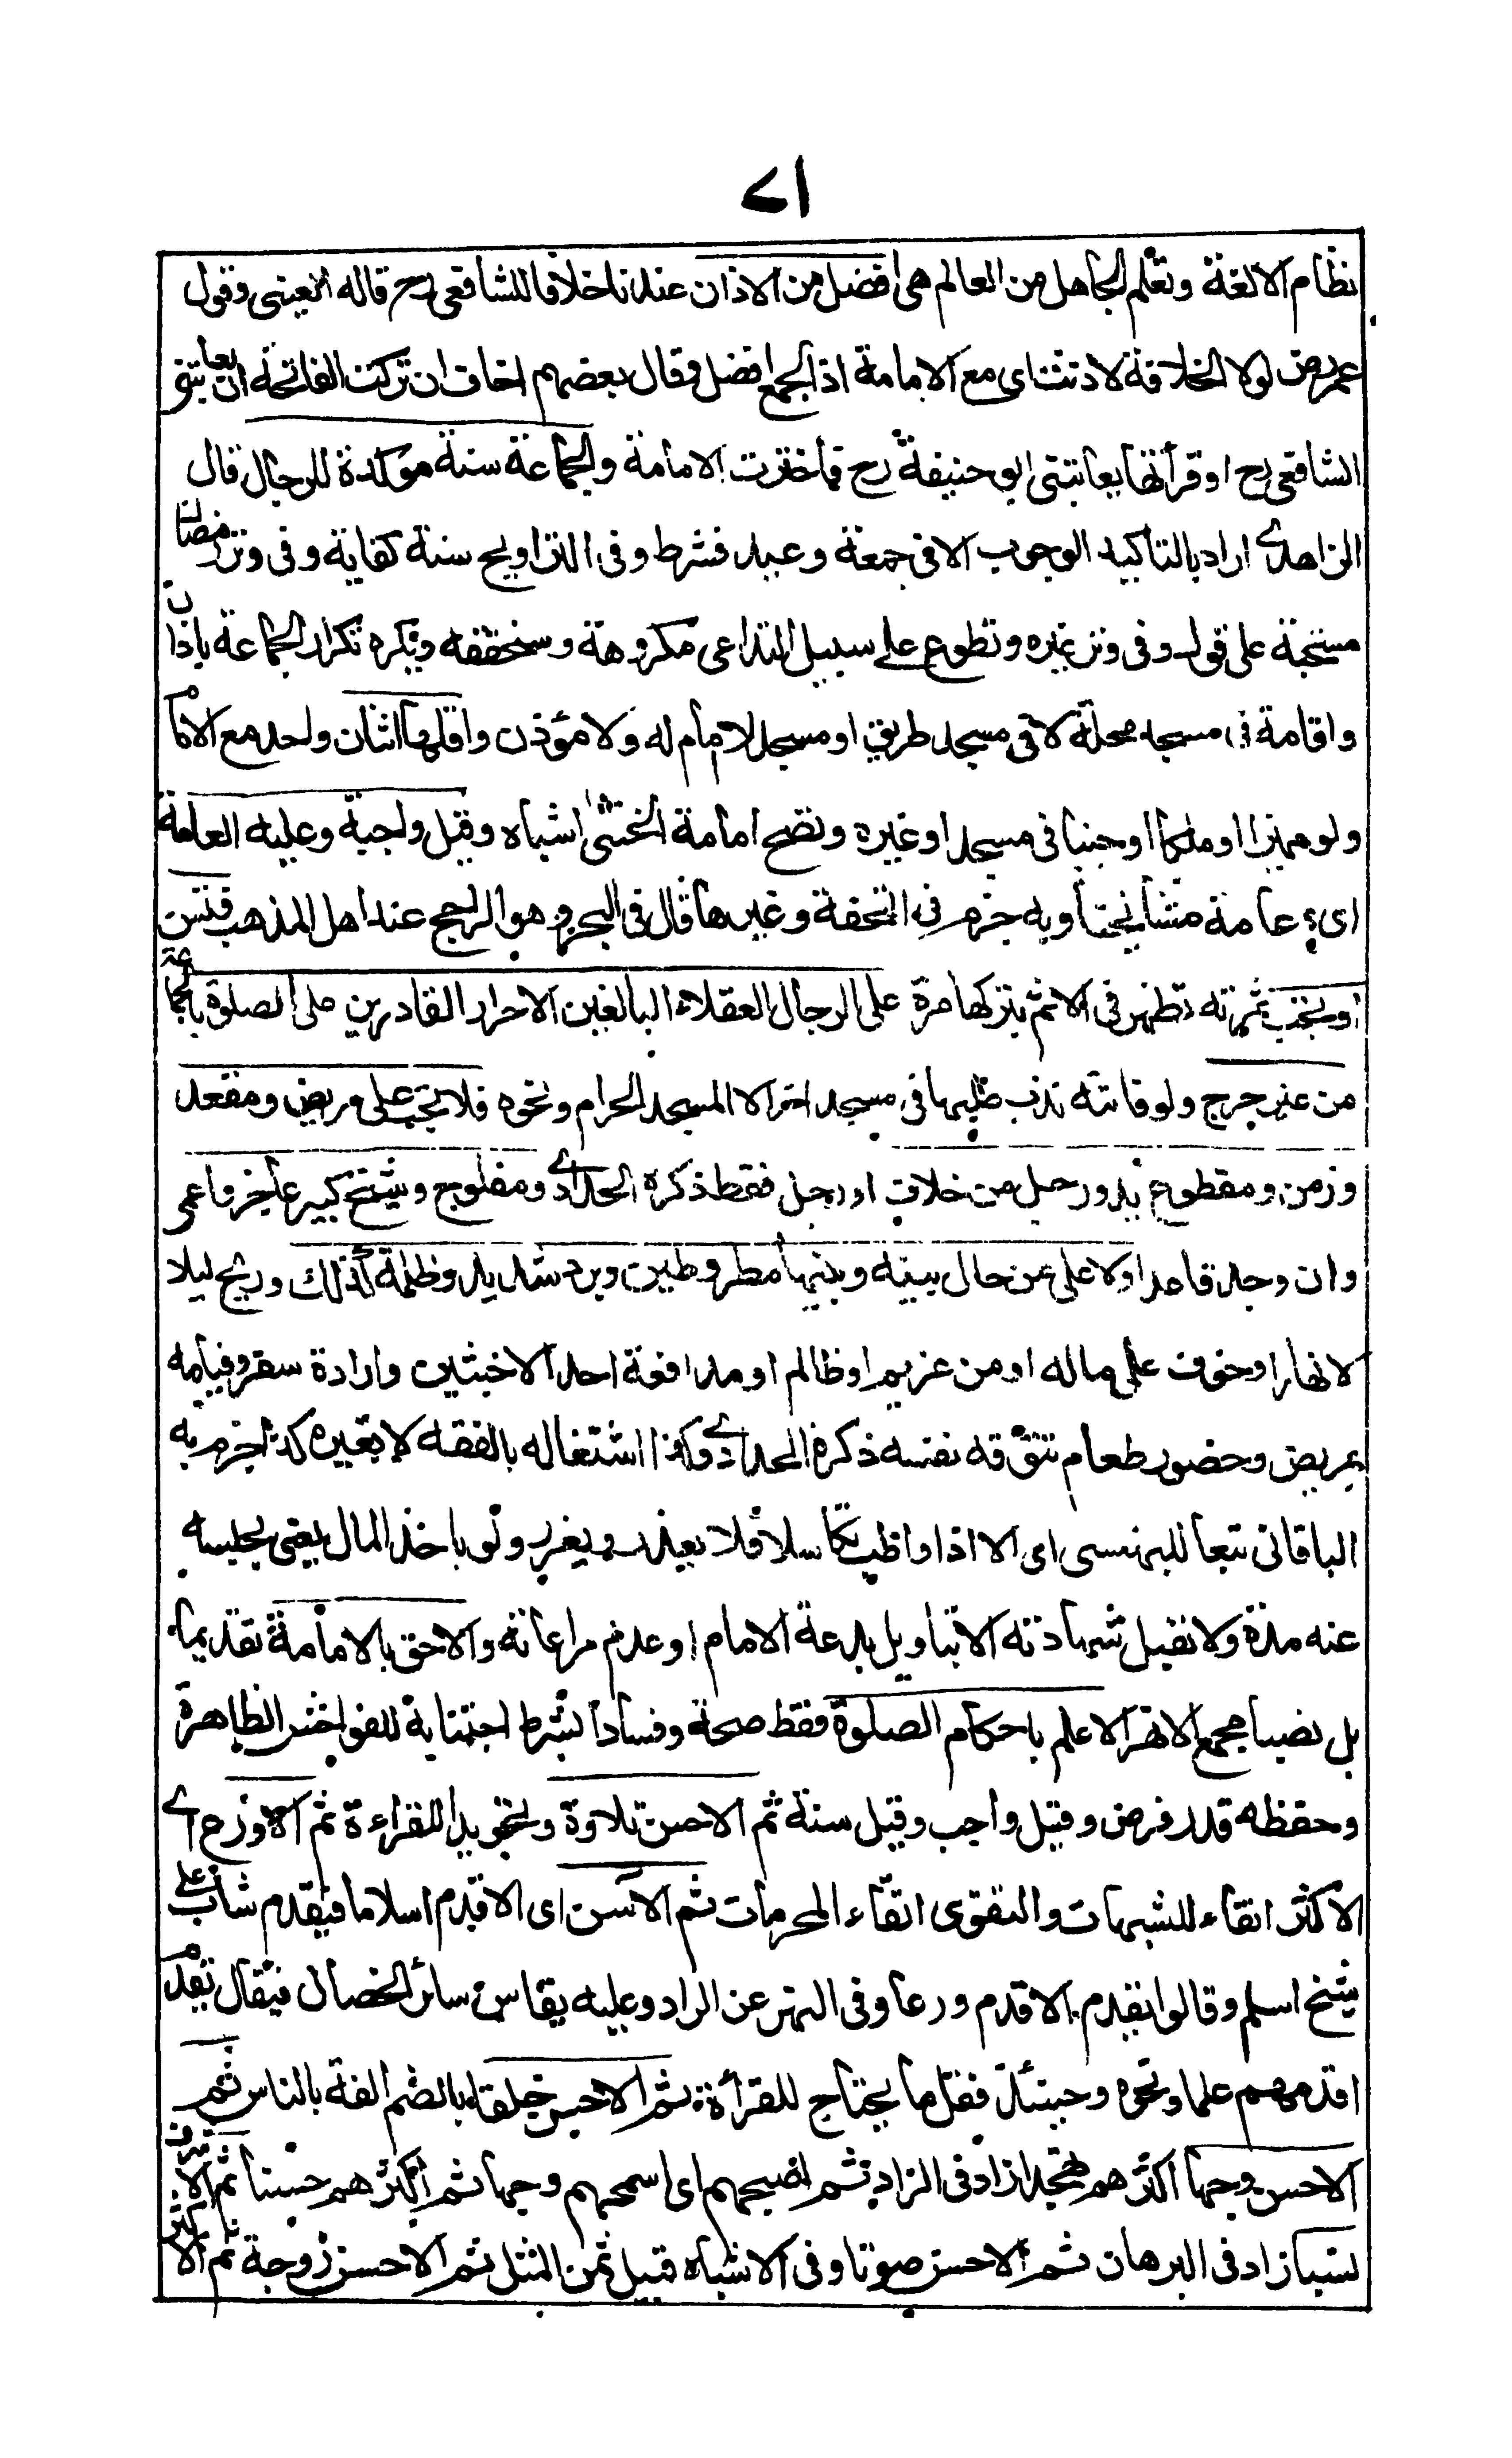 ٧١
نظام الالفة وتعلم الجاهل من العالم هى افضل من الاذان عندنا خلافا للشافعى رح قاله العينى وقول
عمر رض لولا الخلافة لاذنت اى مع الامامة اذ الجمع افضل وقال بعضهم اخاف ان تركت الفاتحة ان يعاتبنى
الشافعى رح او قرأتها يعاتبنى ابو حنيفة رح فاخترت الامامة والجماعة سنة موكدة للرجال قال
الزاهدى ارادبالتاكيد الوجوب الا فى جمعة وعيد فشرط وفى التراويح سنة كفاية وفى وتر رمضان
مستحبة على قول وفى وتر غيره وتطوع على سبيل التداعى مكروهة وسنحققه ويكره تكرار الجماعة باذان
واقامة فى مسجد محلة لا فى مسجد طريق او مسجد لا امام له ولا مؤذن واقلها اثنان واحد مع الامام
ولو مميزا او ملكا او جنيا فى مسجد او غيره وتصح امامة الخنثى اشباه وقيل واجبة وعليه العامة
اى عامة مشايخنا وبه جزم فى التحفة وغيرها قال فى البحر وهو الراجح عند اهل المذهب فتسن
او تجب ثمرته تظهر فى الاثم بتركها مرة على الرجال العقلاء البالغين الاحرار القادرين على الصلوة بالجماعة
من غير حرج ولو فاتته ندب طلبها فى مسجد اخر الا المسجد الحرام ونحوه فلا تجب على مريض ومقعد
وزمن ومقطوع يد ورجل من خلاف او رجل فقط ذكره الحدادى ومفلوج وشيخ كبير عاجز واعمى
وان وجد قاعدا ولا على من حال بينه وبينها مطر وطين وبرد شديد وظلمة كذلك وريح ليلا
لا نهارا وخوف على ماله او من غريم او ظالم او مدافعة احد الاخبثين وارادة سفر وقيامه
بمريض وحضور طعام تتوقه نفسه ذكره الحدادى وكذا اشتغاله بالفقه لا بغيره كذا جزم به
الباقانى تبعا للبهنسى اى الا اذا واظب تكاسلا فلا يعذر ويعزر ولو باخذ المال يعنى بحبسه
عنه مدة ولا تقبل شهادته الا بتاويل بدعة الامام او عدم مراعاته والاحق بالامامة تقديما
بل نصبا مجمع الانهر الاعلم باحكام الصلوة فقط صحة وفسادا بشرط اجتنابه للفواحش الظاهرة
وحفظه قدر فرض وقيل واجب وقيل سنة ثم الاحسن تلاوة وتجويدا للقراءة ثم الاورع اى
الاكثر اتقاء للشبهات والتقوى اتقاء المحرمات ثم الاسن اى الاقدم اسلاما فيقدم شاب على
شيخ اسلم وقالوا يقدم الاقدم ورعا وفى النهر عن الزاد وعليه يقاس سائر الخصال فيقال يقدم
اقدمهم علما ونحوه وحينئذ فقل ما يحتاج للقرأة ثم الاحسن خلقا بالضم الفة بالناس ثم
الاحسن وجها اكثرهم تهجدا زاد فى الزاد ثم اصبحهم اى اسمحهم وجها ثم اكثرهم حسبا ثم الاشرف
نسبا زاد فى البرهان ثم الاحسن صوتا وفى الاشباه قبيل ثمن المثل ثم الاحسن زوجة ثم الاكثر